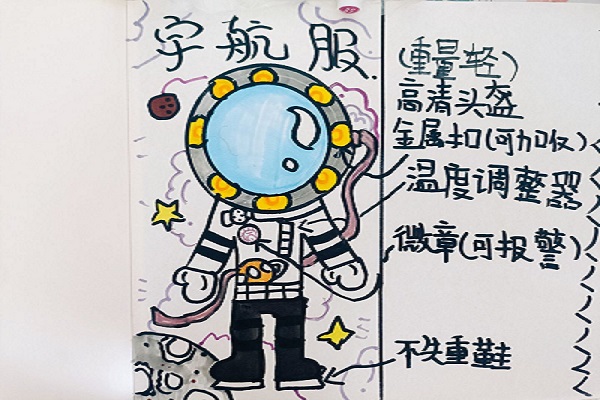 宇航服
(重量轻)
高清头盔
金属扣(可加收)
温度调整器
微章(可报警)
不失重鞋